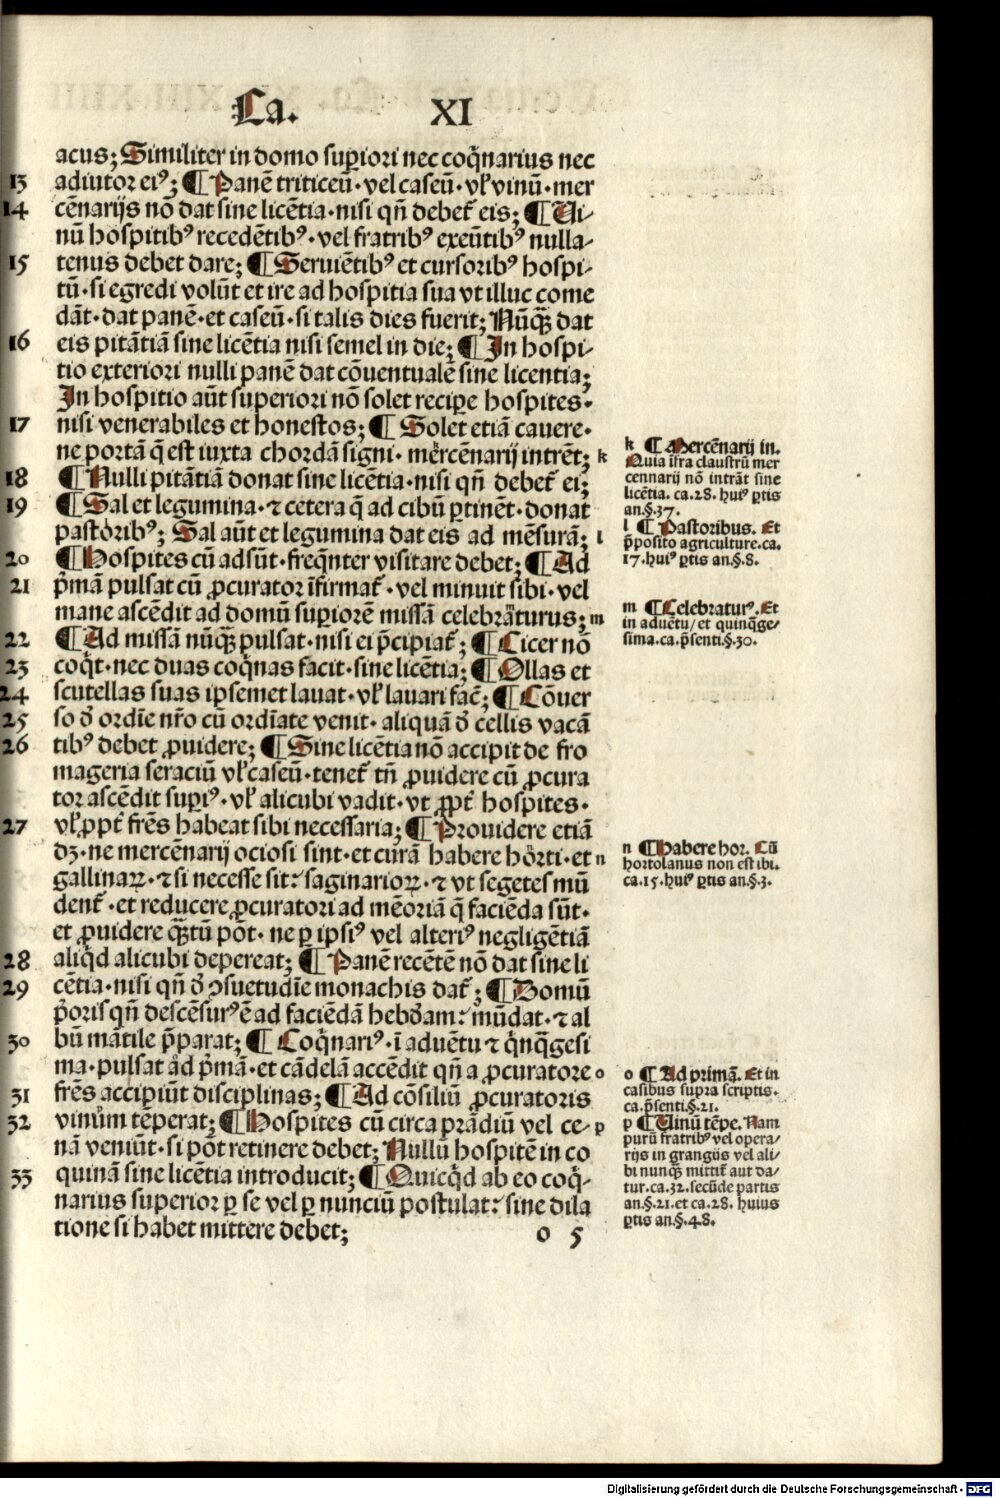 Ca. XI
acus; Similiter in domo suꝑiori nec coq̄narius nec
13 adiutor eiꝰ; ¶ Panē triticeū · vel caseū · vł vinū · mer
14 cēnarijs nō dat sine licētia · nisi qñ debet̉ eis; ¶ Ui⸗
nū hospitibꝰ recedētibꝰ · vel fratribꝰ exeūtibꝰ nulla⸗
15 tenus debet dare; ¶ Seruiētibꝰ et cursoribꝰ hospi⸗
tū · si egredi volūt et ire ad hospitia sua vt illuc come
dāt · dat panē · et caseū · si talis dies fuerit; Nūq̄ꝫ dat
16 eis pitātiā sine licētia nisi semel in die; ¶ In hospi⸗
tio exteriori nulli panē dat cōuentualē sine licentia;
In hospitio aūt superiori nō solet recipe hospites ·
17 nisi venerabiles et honestos; ¶ Solet etiā cauere ·
ne portā q̄ est iuxta chordā signi · mercēnarij intrēt; k
18 ¶ Nulli pitātiā donat sine licētia · nisi qñ debet̉ ei;
19 ¶ Sal et legumina · ⁊ cetera q̄ ad cibū ꝑtinēt · donat
pastoribꝰ; Sal aūt et legumina dat eis ad mēsurā; l
20 ¶ Hospites cū adsūt · freq̄nter visitare debet; ¶ Ad
21 p̄mā pulsat cū ꝓcurator īfirmat̉ · vel minuit sibi · vel
mane ascēdit ad domū suꝑiorē missā celebraturus; m
22 ¶ Ad missā nūq̄ꝫ pulsat · nisi ei p̄cipiat̉; ¶ Cicer nō
23 coq̄t · nec duas coq̄nas facit · sine licētia; ¶ Ollas et
24 scutellas suas ipsemet lauat · vł lauari fac̄; ¶ Cōuer
25 so đ ordīe nr̄o cū ordīate venit · aliquā đ cellis vacā
26 tibꝰ debet ꝓuidere; ¶ Sine licētia nō accipit de fro
mageria seraciū vł caseū · tenet̉ tñ ꝓuidere cū ꝓcura
tor ascēdit supiꝰ · vł alicubi vadit · vt ꝓpt̉ hospites ·
27 vł ꝓpt̉ fr̄es habeat sibi necessaria; ¶ Prouidere etiā
dꝫ · ne mercēnarij ociosi sint · et curā habere horti · et n
gallinaꝝ · ⁊ si necesse sit: saginarioꝝ · ⁊ vt segetes mū
dent̉ · et reducere ꝓcuratori ad mēoriā q̄ faciēda sūt ·
et ꝓuidere q̄ꝫtū pōt · ne ꝑ ipsiꝰ vel alteriꝰ negligētiā
28 aliq̄d alicubi depereat; ¶ Panē recētē nō dat sine li
29 cētia · nisi qñ đ ɔsuetudīe monachis dat̉; ¶ Domū
p̄oris qñ descēsurꝰ ē ad faciēdā hebđam: mūdat · ⁊ al
30 bū mātile p̄parat; ¶ Coq̄nariꝰ · ī aduētu ⁊ q̄nq̄gesi
ma · pulsat ad p̄mā · et cādelā accēdit qñ a ꝓcuratore o
31 fr̄es accipiūt disciplinas; ¶ Ad cōsiliū ꝓcuratoris
32 vinum tēperat; ¶ Hospites cū circa prādiū vel ce⸗ p
nā veniūt · si pōt retinere debet; Nullū hospitē in co
33 quinā sine licētia introducit; ¶ Quicq̄d ab eo coq̄⸗
narius superior ꝑ se vel ꝑ nunciū postulat: sine dila
tione si habet mittere debet;
o 5
k ¶ Mercēnarij in.
Quia īfra claustrū mer
cennarij nō intrāt sine
licētia. ca.28. huiꝰ ꝑtis
an.§.37.
l ¶ Pastoribus. Et
p̄posito agriculture.ca.
17.huiꝰ ꝑtis an.§.8.
m ¶ Celebraturꝰ. Et
in aduētu/ et quinq̄ge⸗
sima.ca.p̄senti.§.30.
n ¶ Habere hor. Cū
hortolanus non est ibi.
ca.15.huiꝰ ꝑtis an.§.3.
o ¶ Ad primā. Et in
casibus supra scriptis.
ca.p̄senti.§.21.
p ¶ Uinū tēpe. Nam
purū fratribꝰ vel opera⸗
rijs in grangijs vel ali⸗
bi nunq̄ꝫ mittit̉ aut da⸗
tur.ca.32.secūde partis
an.§.21.et ca.28. huius
ꝑtis an.§.48.
Digitalisierung gefördert durch die Deutsche Forschungsgemeinschaft - DFG